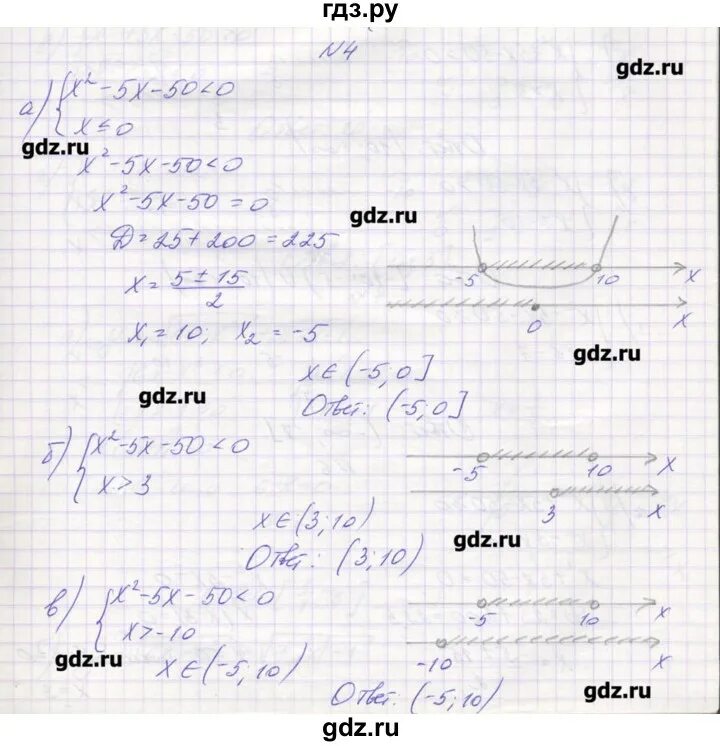 гдз.ру
№4
gdz.ru
а) { x² - 5x - 50 < 0
x ≤ 0
gdz.ru
x² - 5x - 50 < 0
x² - 5x - 50 = 0
gdz.ru
D = 25 + 200 = 225
x = (5 ± 15)/2
-5 10 x
x₁ = 10; x₂ = -5
0 x
gdz.ru
x ∈ (-5; 0]
gdz.ru
Ответ: (-5; 0]
б) { x² - 5x - 50 < 0
-5 10 x
x > 3
3 x
x ∈ (3; 10)
gdz.ru
Ответ: (3; 10)
в) { x² - 5x - 50 < 0
-5 10 x
x > -10
gdz.ru
x ∈ (-5; 10)
-10 x
Ответ: (-5; 10)
gdz.ru
gdz.ru